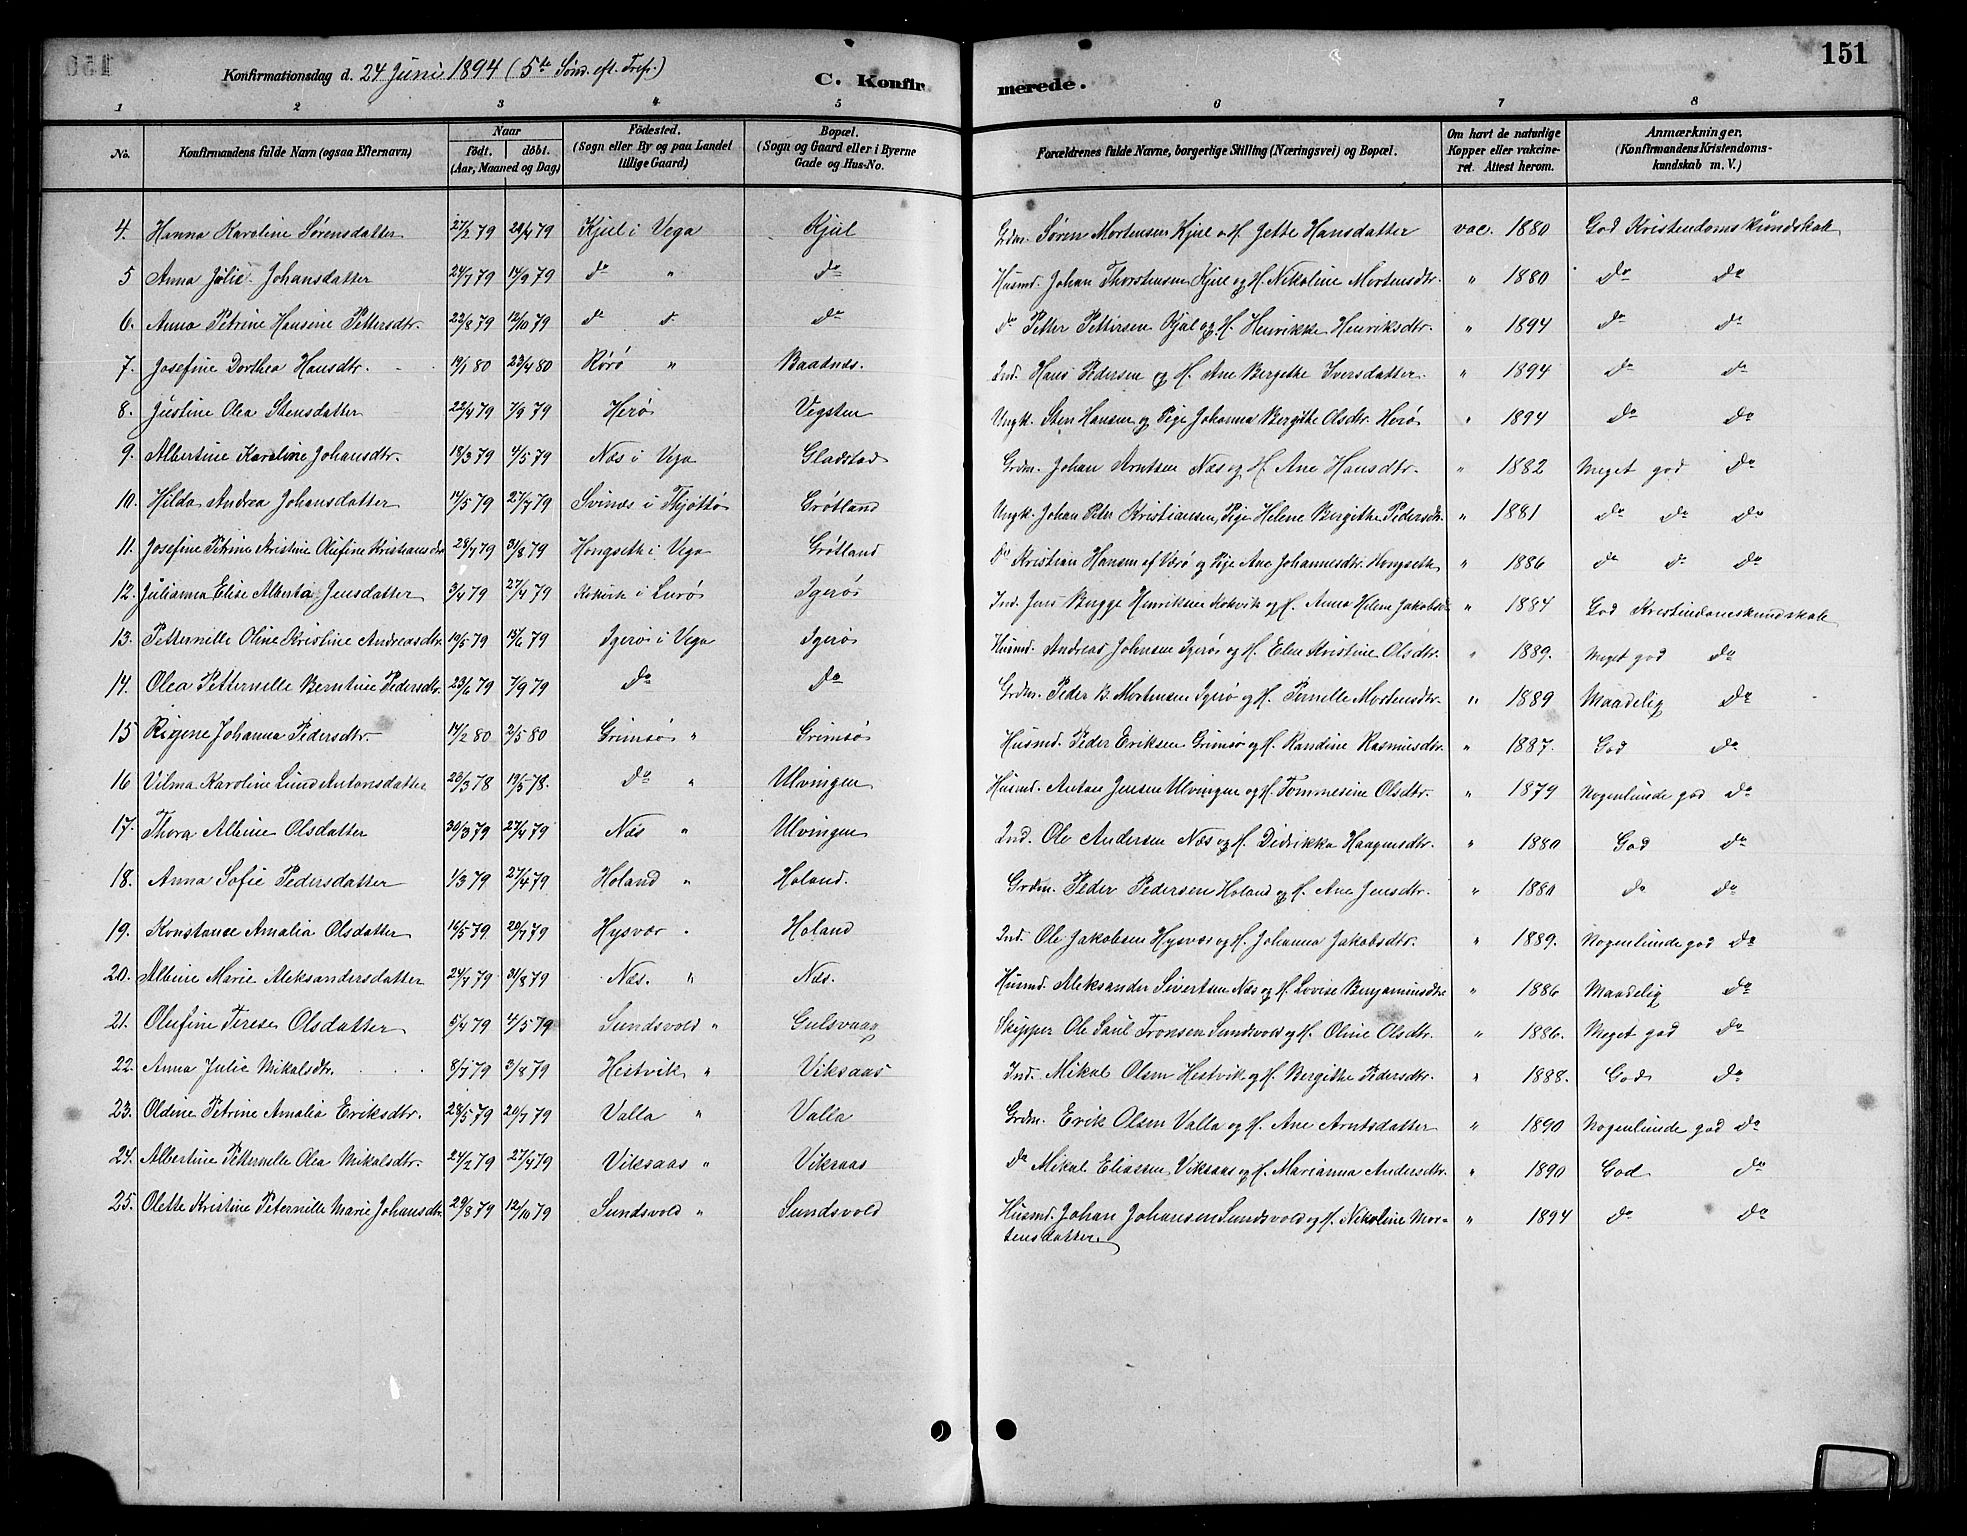 151
Konfirmationsdag d. 24 Juni 1894 (5te Sønd. eft. Tref.)
C. Konfirmerede.
1 2 3 4 5 6 7 8
No. Konfirmandens fulde Navn (ogsaa Efternavn) Naar født. døbt. (Aar, Maaned og Dag) Fødested. (Sogn eller By og paa Landet tillige Gaard) Bopæl. (Sogn og Gaard eller i Byerne Gade og Hus-No. Forældrenes fulde Navne, borgerlige Stilling (Næringsvei) og Bopæl. Om havt de naturlige Kopper eller vakcineret. Attest herom. Anmærkninger. (Konfirmandens Kristendomskundskab m. V.)
4. Hanna Karoline Sørensdatter 27/2 79 /4 79 Kjul i Vega Kjul Grdm. Søren Mortensen Kjul o H. Jette Hansdatter vac. 1880 God Kristendomskundskab
5 Anna Julie Johansdatter 24/7 79 14/9 79 do " do Husmd. Johan Thorstensen Kjul og H. Nikoline Mortensdtr. " 1880 do do
6. Anna Petrine Hansine Pettersdtr. 22/8 79 12/10 79 do d. do do Petter Pettersen Kjul og H. Henrikke Henriksdtr. " 1894 do do
7. Josefine Dorthea Hansdtr. 19/1 80 23/4 80 Rørø " Baadnes. Ind. Hans Pedersen og H. Ane Bergithe Iversdatter. " 1894 do do
8. Justine Olea Stensdatter 22/4 79 7/9 79 Herø Vegsten Ungk. Sten Hansen og Pige Johanna Bergithe Olsdtr. Herø " 1894 do do
9. Albertine Karoline Johansdtr. 18/3 79 4/5 79 Næs i Vega Gladstad Grdm. Johan Arntsen Næs og H. Ane Hansdtr. " 1882 Meget god do
10. Hilda Andrea Johansdatter 14/5 79 27/7 79 Svines i Thjøttø Grøtland Ungk. Johan Peter Kristiansen, Pige Helene Bergithe Pedersdtr. " 1881 do do do
11. Josefine Petrine Kristine Olufine Kristiansdtr 28/7 79 31/8 79 Hongseth i Vega Grøtland do Kristian Hansen af Værø og Pige Ane Johannesdtr. Hongseth " 1886 do do do
12. Julianna Elise Alberta Jensdatter 3/4 79 27/4 79 Kokvik i Lurø Igerø Ind. Jens Bugge Henriksen Kokvik og H. Anna Helene Jakobsd. " 1884 God Kristendomskundskab
13. Petternille Oline Kristine Andreasdtr. 19/5 79 15/6 79 Igerø i Vega Igerø Husmd. Andreas Johnsen Igerø og H. Elen Kristine Olsdtr. " 1889. Meget god do
14. Olea Petternelle Berntine Pedersdtr. 23/6 79 7/9 79 do do Grdm. Peder B. Mortensen Igerø og H. Pernille Mortensdtr. " 1889 Maadelig do
15 Regine Johanna Pedersdtr. 14/2 80 2/5 80 Grimsø " Grimsø Husmd. Peder Eriksen Grimsø og H. Randine Rasmusdtr. " 1887. God do
16 Vilma Karoline Lund Antonsdatter 23/3 78 19/5 78. do " Ulvingen Husmd. Anton Jensen Ulvingen og H. Tommesine Olsdtr. " 1879 Nogenlunde god do
17. Thora Albine Olsdatter 30/3 79 27/4 79 Næs " Ulvingen Ind. Ole Andersen Næs og H. Didrikka Haagensdtr. " 1880 God do
18. Anna Sofie Pedersdatter 1/3 79 27/4 79 Holand " Holand. Grdm. Peder Pedersen Holand og H. Ane Jensdtr. " 1880 do do
19. Konstance Amalia Olsdatter 16/5 79 20/7 79 Hysvær " Holand Ind. Ole Jakobsen Hysvær og H. Johanna Jakobsdtr. " 1889. Nogenlunde god do
20. Albine Marie Aleksandersdatter 24/7 79 31/8 79 Næs. " Næs. Husmd. Aleksander Sivertsen Næs og H. Lovise Benjaminsdtr " 1886 Maadelig do
21. Olufine Terese Olsdatter 5/4 79 4/5 79 Sundsvold " Gulsvaag Skipper Ole Saul Tronsen Sundsvold og H. Oline Olsdtr. " 1886. Meget god do
22. Anna Julie Mikalsdtr. 8/7 79 3/8 79 Hestvik " Viksaas Ind. Mikal Olsen Hestvik og H. Bergithe Pedersdtr. " 1888. God do
23. Oldine Petrine Amalia Eriksdtr. 28/5 79 20/7 79 Valla " Valla Grdm. Erik Olsen Valla og H. Ane Arntsdatter " 1890 Nogenlunde god do
24. Albertine Petternelle Olea Mikalsdtr. 24/2 79 27/4 79 Viksaas " Viksaas do Mikal Eliassen Viksaas og H. Marianna Andersdtr. " 1890 God do
25. Olette Kristine Peternille Marie Johansdtr. 29/8 79 12/10 79 Sundsvold " Sundsvold Husmd. Johan Johansen Sundsvold og H. Nikoline Mor-
tensdatter. " 1894 do do